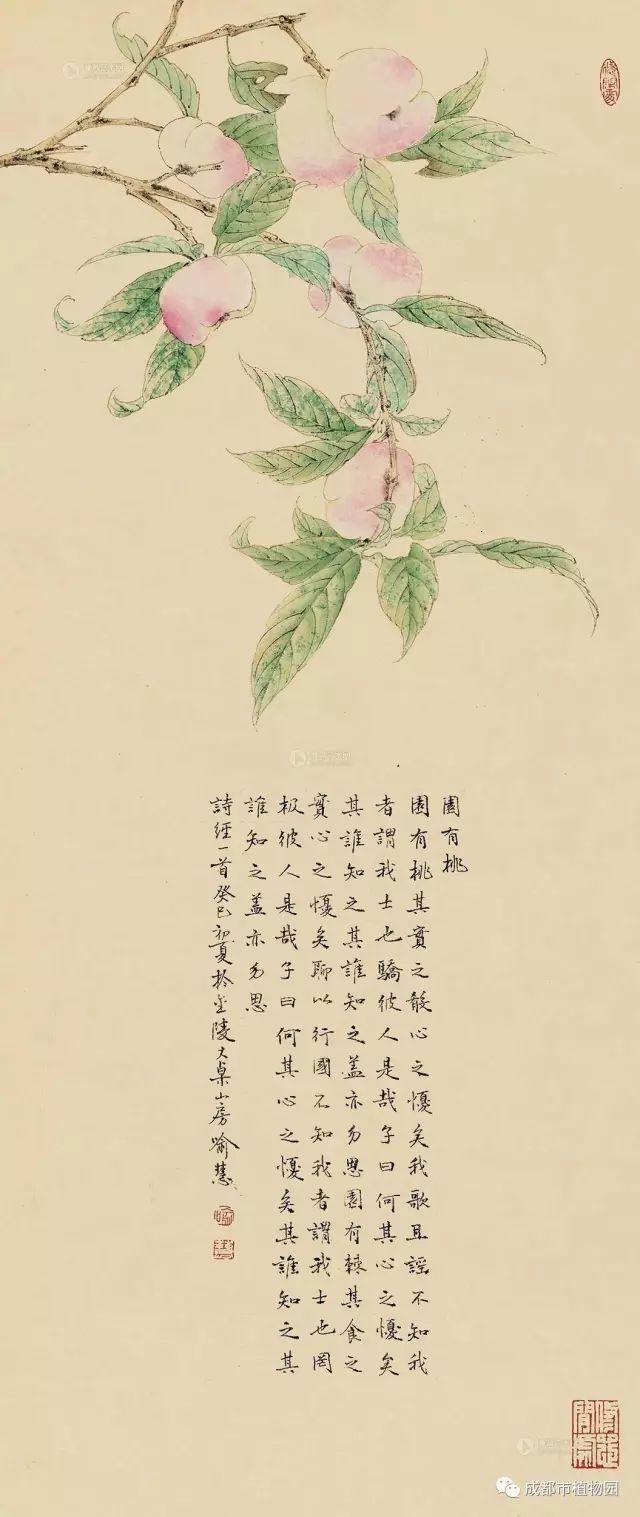 園有桃
園有桃其實之殽心之懮矣我歌且謡不知我
者謂我士也驕彼人是哉子曰何其心之懮矣
其誰知之其誰知之盖亦勿思園有棘其食之
實心之懮矣聊以行國不知我者謂我士也罔
极彼人是哉子曰何其心之懮矣其誰知之其
誰知之盖亦勿思
詩經一首癸巳初夏於金陵大桌山房喻慧
成都市植物园